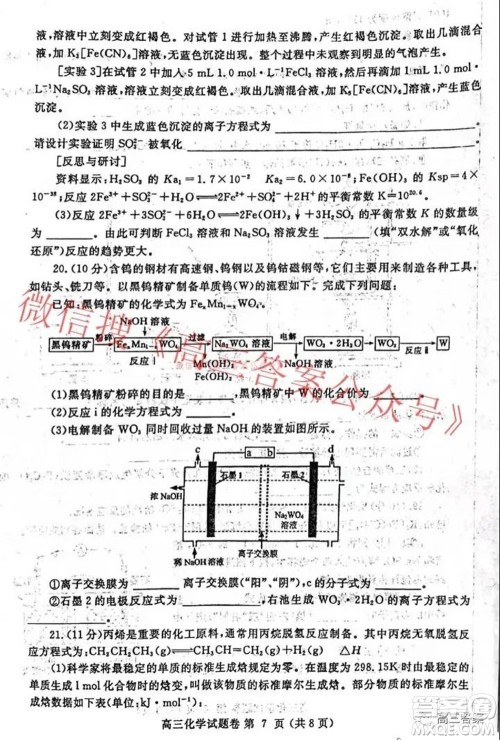 液,溶液中立刻变成红褐色。对试管 1 进行加热至沸腾,产生红褐色沉淀。取出几滴混合
液,加 K₃[Fe(CN)₆]溶液,无蓝色沉淀出现。整个过程中未观察到明显的气泡产生。
[实验 3]在试管 2 中加入 5 mL 1.0 mol·L⁻¹FeCl₃ 溶液,然后再滴加 1 mL 1.0 mol·
L⁻¹Na₂SO₃ 溶液,溶液立刻变成红褐色。取出几滴混合液,加 K₃[Fe(CN)₆]溶液,产生蓝色
沉淀。
(2)实验 3 中生成蓝色沉淀的离子方程式为
请设计实验证明 SO₃²⁻ 被氧化
[反思与研讨]
资料显示:H₂SO₃ 的 Ka₁=1.7×10⁻² Ka₂=6.0×10⁻⁸;Fe(OH)₃ 的 Ksp=4×
10⁻³⁸;反应 2Fe³⁺+SO₃²⁻+H₂O⇌2Fe²⁺+SO₄²⁻+2H⁺ 的平衡常数 K=10²⁰·⁶。
(3)反应 2Fe³⁺+3SO₃²⁻+6H₂O⇌2Fe(OH)₃↓+3H₂SO₃ 的平衡常数 K 的数量级
为 。由此可判断 FeCl₃ 溶液和 Na₂SO₃ 溶液发生 (填“双水解”或“氧化
还原”)反应的趋势更大。
20.(10 分)含钨的钢材有高速钢、钨钢以及钨钴磁钢等,它们主要用来制造各种工具,
如钻头、铣刀等。以黑钨精矿制备单质钨(W)的流程如下。完成下列问题:
已知:黑钨精矿的化学式为 FeₙMn₁₋ₙWO₄
NaOH溶液
黑钨精矿 粉碎 FeₙMn₁₋ₙWO₄ 过滤 Na₂WO₄ 溶液 电解 WO₃·2H₂O WO₃ 反应 ii W
反应 i
Mn(OH)₂
Fe(OH)₂
(1)黑钨精矿粉碎的目的是 ,黑钨精矿中 W 的化合价为
(2)反应 i 的化学方程式为
(3)电解制备 WO₃ 同时回收过量 NaOH 的装置如图所示。
c a b d
石墨 1 石墨 2
浓 NaOH
Na₂WO₄
溶液
离子交换膜
稀 NaOH溶液
①离子交换膜为 离子交换膜(“阳”、“阴”),c 的分子式为
②石墨 2 的电极反应式为 ,右池生成 WO₃·2H₂O 的离子方程式为
21.(11 分)丙烯是重要的化工原料,通常用丙烷脱氢反应制备。其中丙烷无氧脱氢反
应方程式为:CH₃CH₂CH₃(g)⇌CH₃CH=CH₂(g)+H₂(g) △H
(1)科学家将最稳定的单质的标准生成焓规定为零。在温度为 298.15K 时由最稳定的
单质生成 1mol 化合物时的焓变,叫做该物质的标准摩尔生成焓。如几种物质的标准摩尔生
成焓数据如下表(单位:kJ·mol⁻¹):
高三化学试题卷 第 7 页(共 8 页)
微信搜《高三答案公众号》